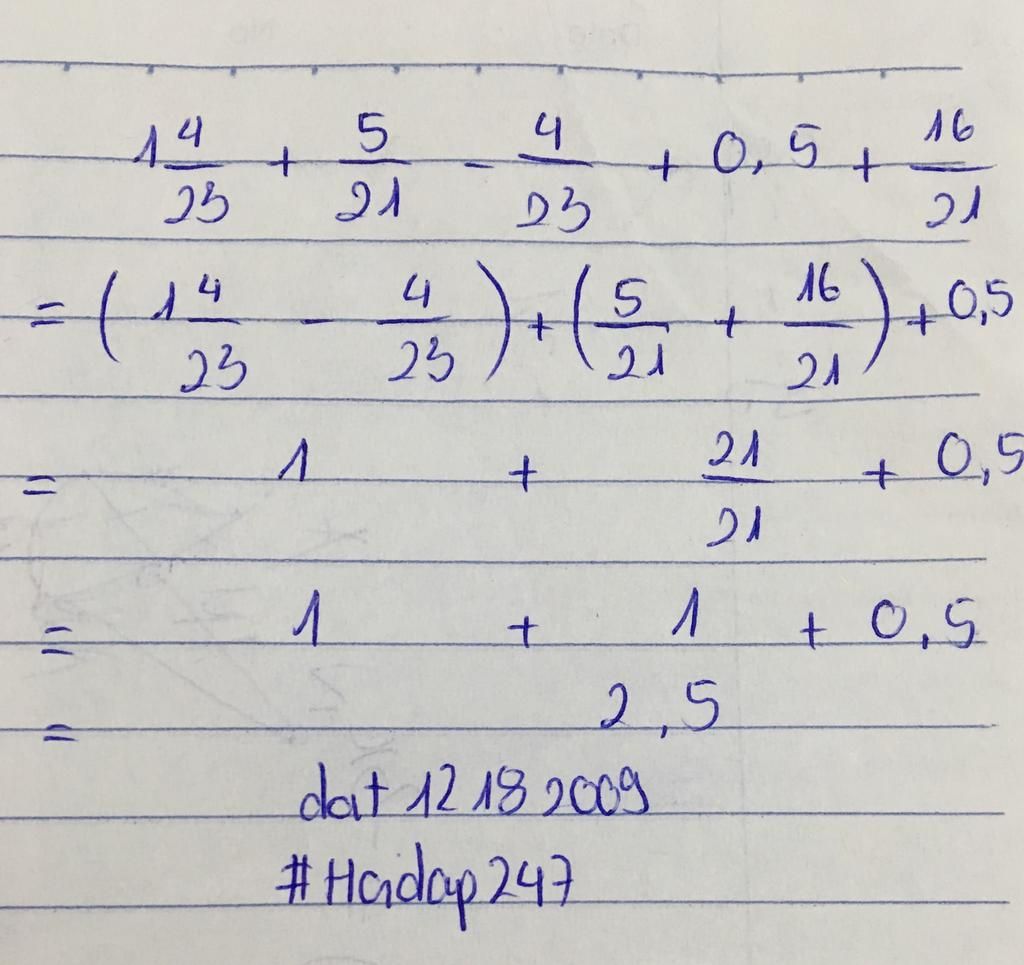 1 4/23 + 5/21 - 4/23 + 0,5 + 16/21
= ( 1 4/23 - 4/23 ) + ( 5/21 + 16/21 ) + 0,5
= 1 + 21/21 + 0,5
= 1 + 1 + 0,5
= 2,5
dat 12 18 2009
#Hoidap247